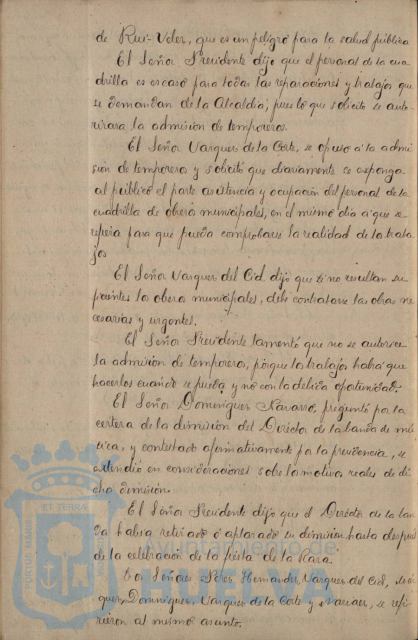 de Rui-Velez, que es un peligro para la salud pública
El Señor Presidente dijo que el personal de la cua
drilla es escaso para todas las reparaciones y trabajos que
se demandan de la Alcaldía; pues lo que solicitó se auto
rizara la admisión de temporeros.
El Señor Vazquez de la Corte, se opuso á la admi
sión de temporeros y solicitó que diariamente se exponga
al público el parte asistencia y ocupación del personal de la
cuadrilla de obreros municipales, en el mismo día á que se
refiera para que pueda comprobarse la realidad de los traba
jos
El Señor Vazquez del Cid dijo que si no resultan su
ficientes los obreros municipales, debe contratarse las obras ne
cesarias y urgentes.
El Señor Presidente lamentó que no se autorice
la admisión de temporeros, porque los trabajos habrá que
hacerlos cuando se pueda y no con la debida oportunidad.
El Señor Dominguez Navarro, preguntó por la
certeza de la dimisión del Director de la banda de mú
sica, y contestado afirmativamente por la presidencia, se
extendió en consideraciones sobre los motivos reales de di
cha dimisión.
El Señor Presidente dijo que el Director de la ban
da habia retirado ó aplazado su dimisión hasta después
de la celebración de la fiesta de la Raza.
Los Señores Perez Hernandez, Vazquez del Cid,
quez, Dominguez, Vazquez de la Corte y se refi
rieron al mismo asunto.
PORTUS MARIS
ET TERRA
Ayuntamiento de
HUELVA